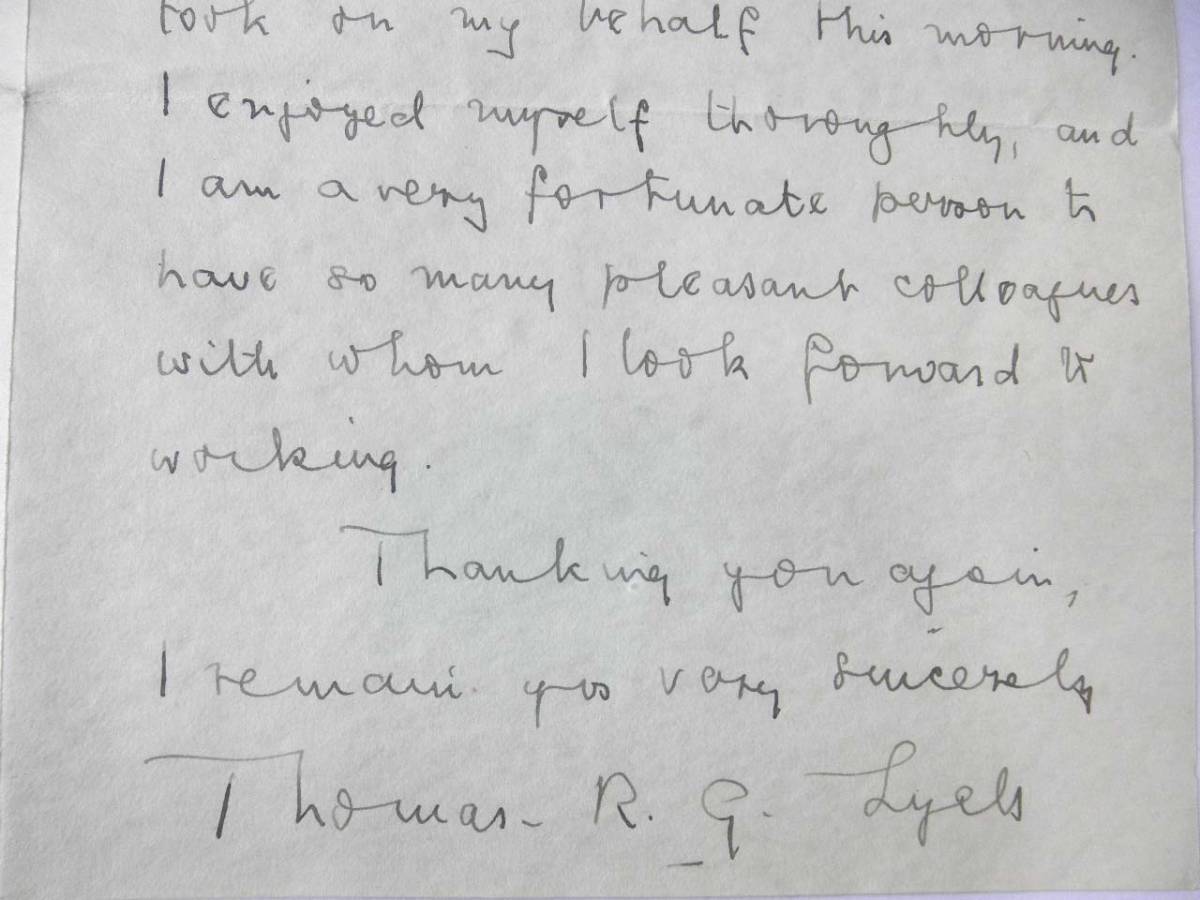 took on my behalf this morning.
I enjoyed myself thoroughly, and
I am a very fortunate person to
have so many pleasant colleagues
with whom I look forward to
working.
Thanking you again,
I remain yrs very sincerely
Thomas R. G.